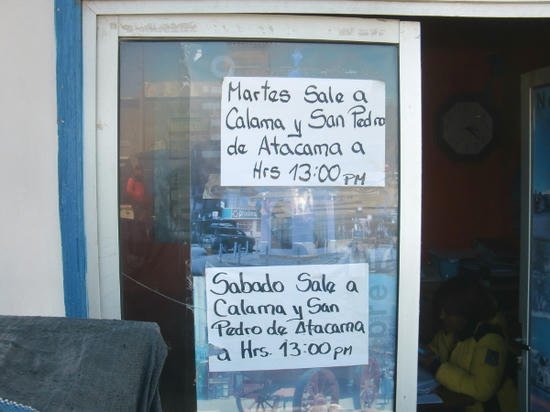 Martes Sale a
Calama y San Pedro
de Atacama a
Hrs 13:00 PM
Sabado Sale a
Calama y San
Pedro de Atacama
a Hrs. 13:00 PM